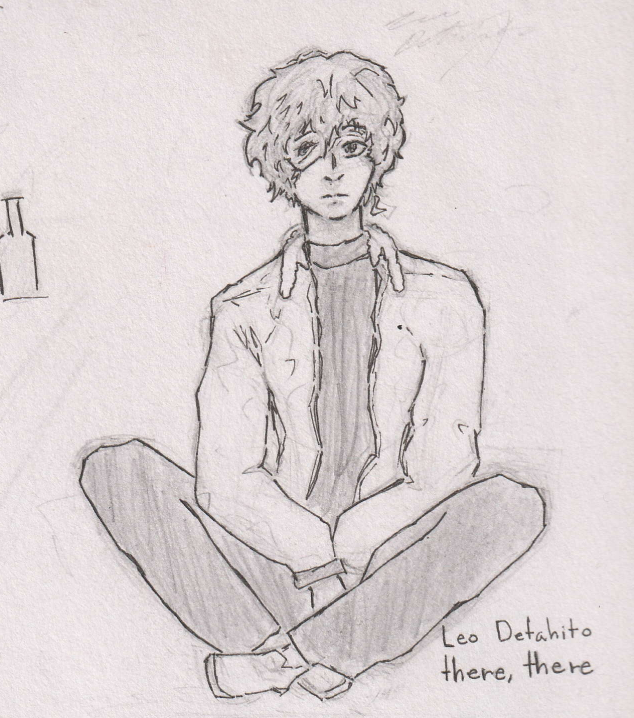 Leo Detahito
there, there